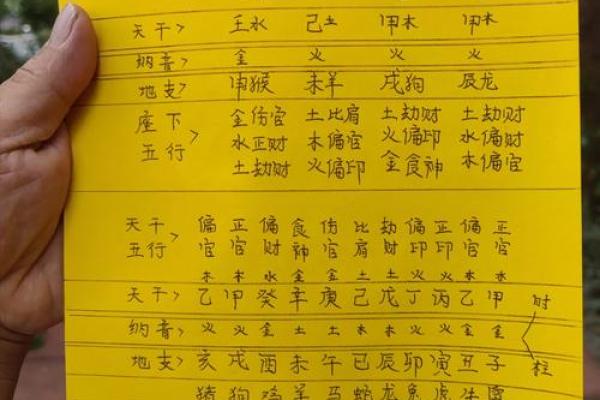 天干> 壬水 己土 甲木 甲木
纳音> 金 火 火 火
地支> 申猴 未羊 戌狗 辰龙
座下 金伤官 土比肩 土劫财 土劫财
五行> 水正财 木偏官 火偏印 水偏财
土劫财 火偏印 金食神 木偏官
天干 偏 正 偏 食 伤 比 劫 偏 正 偏 正
五行> 官 官 财 神 官 肩 财 印 印 官 官
木 木 水 金 金 土 土 火 火 木 木
天干> 乙 甲 癸 辛 庚 己 戊 丁 丙 乙 甲 时
纳音> 火 火 金 土 土 木 木 火 火 金 金
地支> 亥 戌 酉 未 午 巳 辰 卯 寅 丑 子 柱
猪 狗 鸡 羊 马 蛇 龙 兔 虎 牛